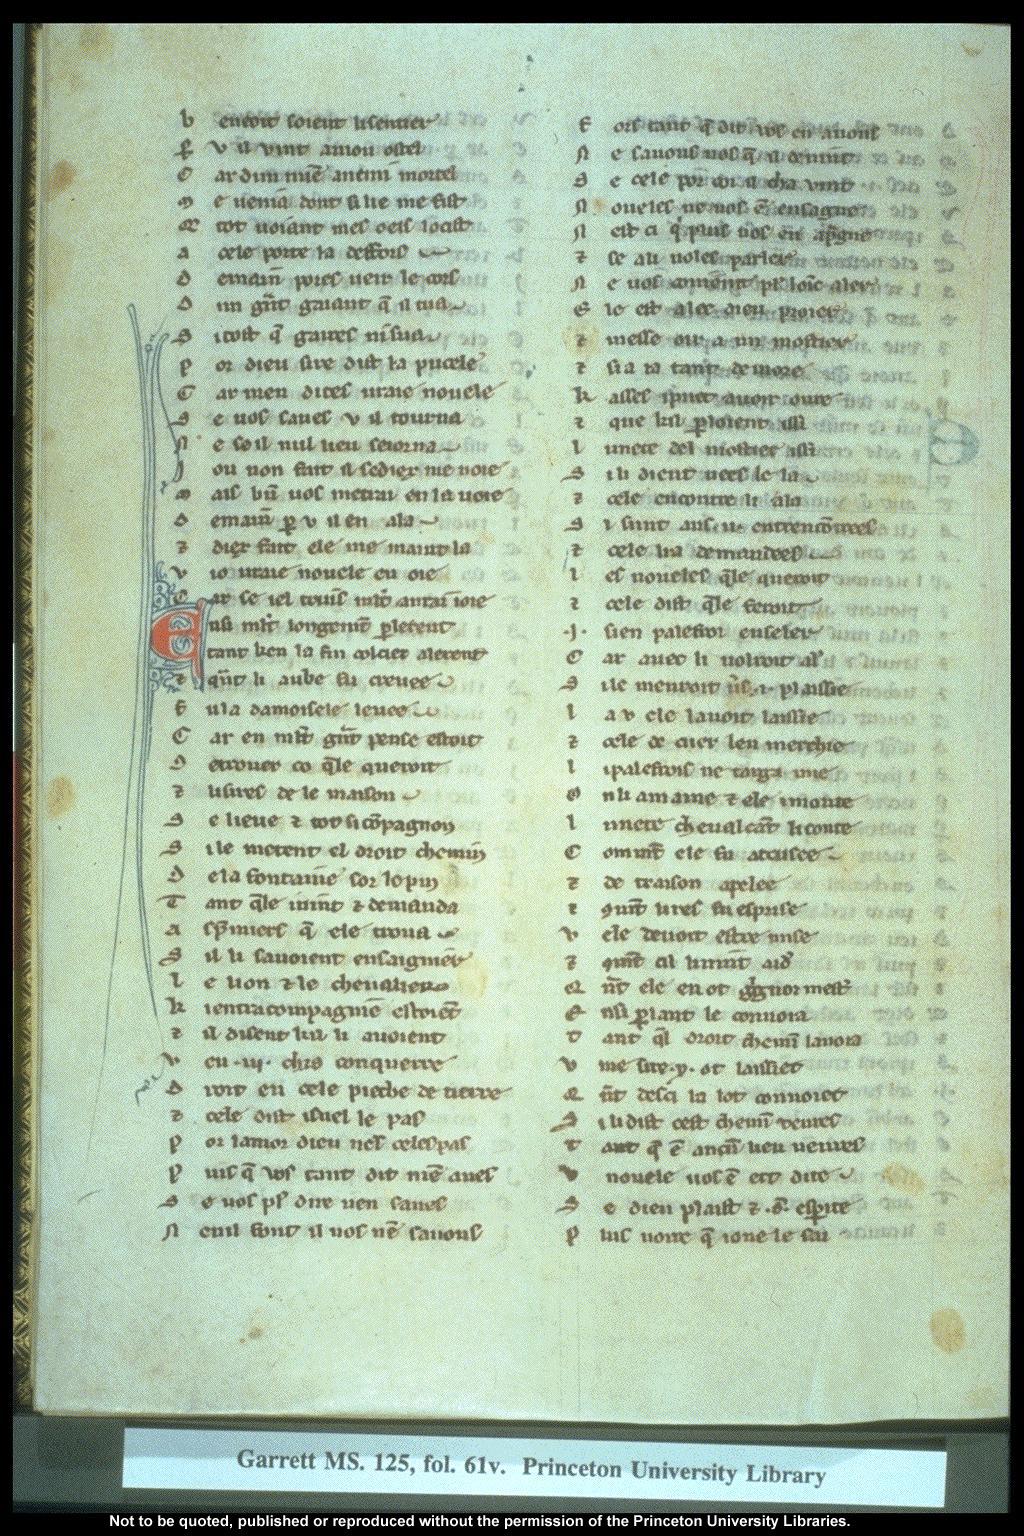 B eneoit soient li sentier
P v il vint a mon ostel
C ar dun mlt̄ anemi mortel
M e ueniā dont si lie me fist
Q̄ tot uoiant mes oels locist
A cele porte la deffors
D emain pores ueir le cors
D un grāt gaiant q̄ il tua
S i tost q̄ gaires ni sua
P or dieu sire dist la pucele
C ar men dites uraie nouele
S e uos saues v il tourna
N e so il nul lieu seiorna
J ou non fait il se diex me uoie
M ais biē uos metrai en la uoie
D emain p̱ v il en ala
⁊ diex fait ele me maint la
V io uraie nouele en oie
C ar se iel truis mlt̄ aurai ioie
E nsi mlt̄ longemēt p̱lerent
tant ken la fin colcier alerent
⁊ q̄nt li aube fu creuee
F u la damoisele leuee
C ar en mlt̄ grāt pense estoit
D e trouer co q̄le queroit
⁊ li sires de le maison
S e lieue ⁊ tot si cōpagnon
S i le metent el droit chemin
D e la fontaine soz lo pin
T ant q̄le i uint ⁊ demanda
A s p̄miers q̄ ele troua
S il li sauoient ensaignier
L e lion ⁊ lo cheualier
K i entracompagnié estoiēt
⁊ il disent kil li auoient
V eu .iij. chrs conquerre
D roit en cele pieche de tierre
⁊ cele dist isnel le pas
P or lamor dieu nel celes pas
P uis q̄ vos tant dit mē aues
S e uos pl9 dire uen saues
N enil font il nos nē sauons
F ors tant q̄ dit vos en auons
N e sauons nos q̄ il deuint
S e cele por cui il cha vint
N oueles ne uos ē ensagne
N est ci q̄ plus uos en ap̄gne
⁊ se a li uoles parler
N e uos couuiēt pl9 loīg aler
E le est alee dieu proier
⁊ messe oir a un mostier
⁊ si a ia tant demore
K asses i puet auoir oure
⁊ que kil p̱loient issi
L unete del mostier issi
S i li dient uees le la
⁊ cele encontre li ala
S i sunt anseus entrencōtrees
⁊ cele li a demandees
L es noueles q̄le queroit
⁊ cele dist q̄le feroit
.J. sien palefroi enseler
C ar auec li uolroit aler
S i le menroit
L a v ele lauoit laissie
⁊ cele de cuer len merchie
L i palefrois ne targa mie
O n li amaine ⁊ ele i monte
L unete cheualcāt li conte
C oment ele fu acusee
⁊ de traison apelee
⁊ 9ment li res fu esprise
V ele deuoit estre mise
⁊ 9ment cil li uint aidr
Q̄nt ele en ot grignor mest̄
E nsi p̱lant le conuoia
T ant ql droit chemī lauoia
V me sire .y. ot laissiet
Q̄nt desci la lot conuoiet
S i li dist cest chemī tenres
T ant q̄ ē aucū lieu uenres
V nouele uos ē ert dite
S e dieu plaist ⁊ .s. esp̱ite
P lus uoire q̄ ione le sai
Garrett MS. 125, fol. 61v. Princeton University Library
Not to be quoted, published or reproduced without the permission of the Princeton University Libraries.